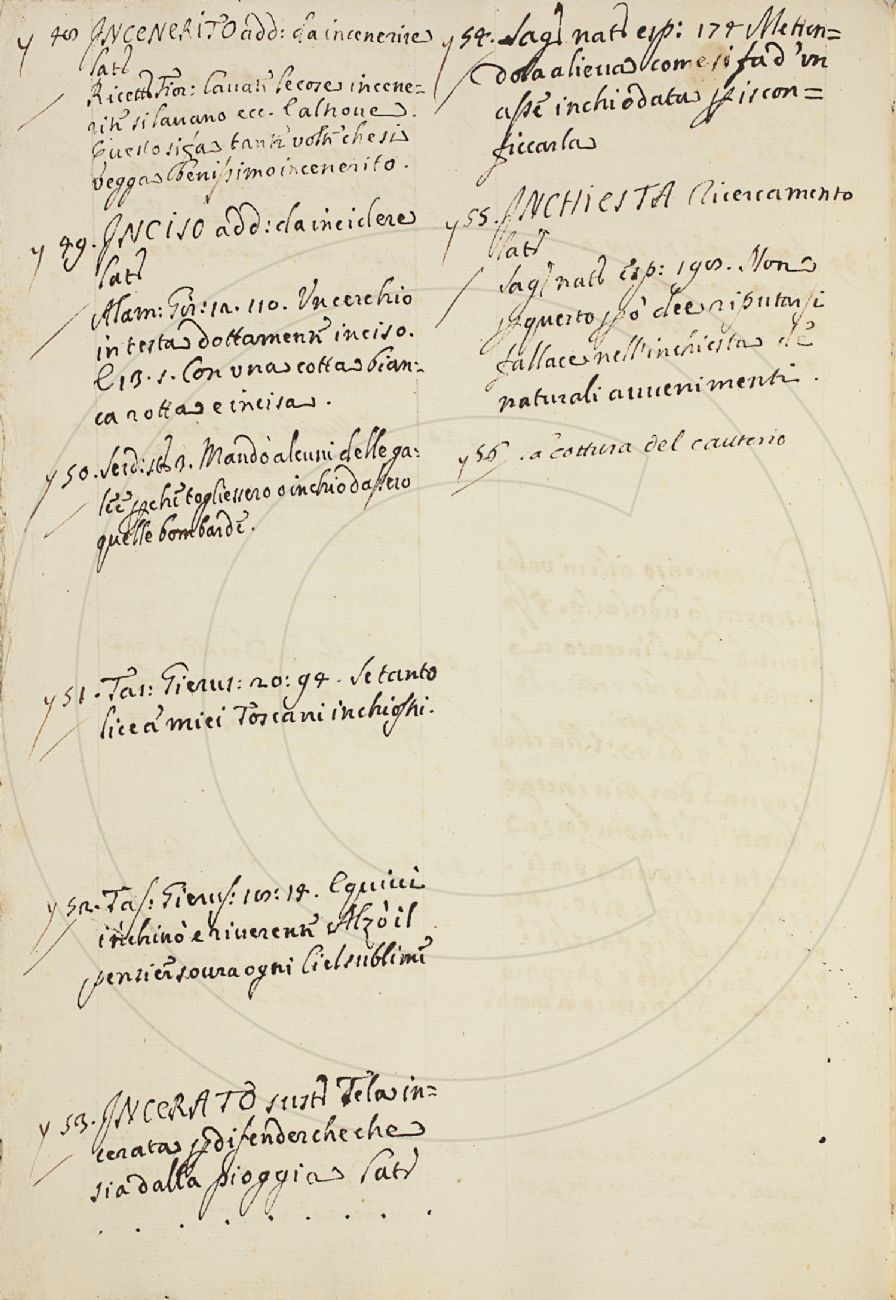 y 48 INCENERITO add: da incenerire
Lat:
Ricett: Fior: Lavati le cose incene=
rite si lavano ecc. E altrove.
Questo si fa tante volte che si
vegga benissimo incenerito.
y 49. INCISO add: da incidere
Lat:
Alam: Gir: 12. 110. Un cerchio
in testa dottamente inciso.
E 13. 5. Con una cotta bian=
ca rotta e incisa.
y 50. Serd: st: 3. Mandò alcuni delle ga:
lee perchè togliessero o inchiodassero
quelle bombarde.
y 51. Tas: Gierus: 20: 94. Se tanto
lice a' miei Toscani inchiostri.
y 52. Tas: Gierus: 18: 14. E quivi
inchinò e riverente Alzò il
pensier sovra ogni Ciel sublime
y 53. INCERATO sust: Tela in=
cerata per difender che che
sia dalla pioggia Lat:
. . . . . . . .
y 54. Sag: nat: esp: 174 Metten=
dola a lieva come si fa d'un
asse inchiodata per iscon=
ficcarla
y 55. INCHIESTA Ricercamento
Lat:
Sag: nat: Esp: 198. Non
per questo però dee riputarsi
fallace nell'inchiesta de
naturali avvenimenti.
y 56. a cottura del cauterio